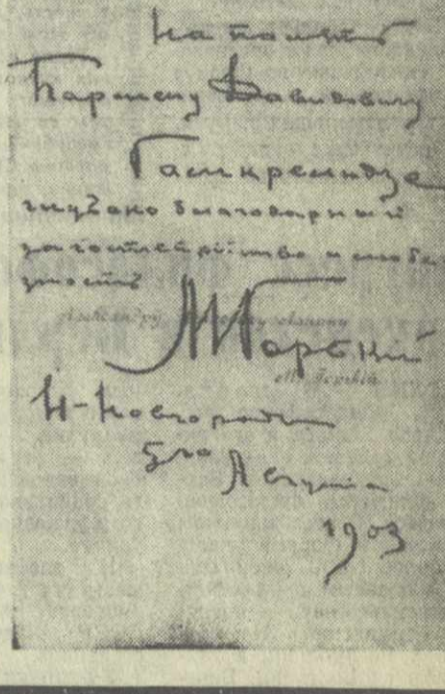 На память
Пармену Давидовичу
Гамкрелидзе
глубоко благодарный
за гостепрiимство и любез
ность
Александру
М Горькiй
М. Горькiй
Н-Новгородъ
5го
Августа
1903